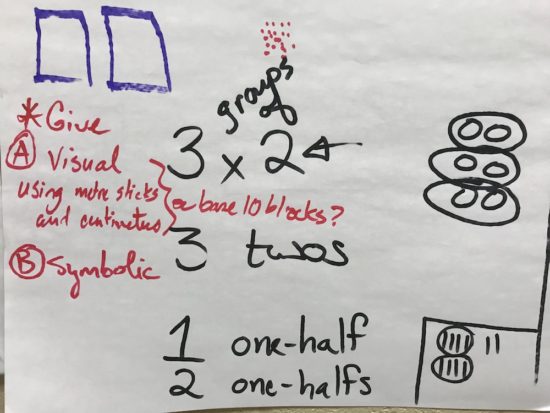 groups
of
3 x 2
* Give
A Visual
using metre sticks
and centimetres
or base 10 blocks?
B Symbolic
3 twos
1 one-half
2 one-halfs